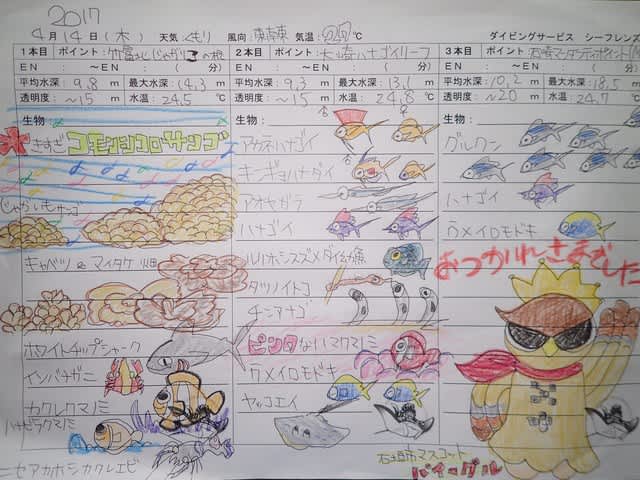 2017
4月14日(木) 天気:くもり 風向:東南東 気温: ℃ ダイビングサービス シーフレンズ
1本目 ポイント: 竹富
2本目 ポイント: 大崎ハナゴイリーフ
3本目 ポイント: 石崎マンタ
EN: ～EN: ( 分)
EN: ～EN: ( 分)
EN: ～EN: ( 分)
平均水深: 9,8 m 最大水深: 14,3 m
平均水深: 9,3 m 最大水深: 13,1 m
平均水深: 10,2 m 最大水深: 18,5 m
透明度: ~15 m 水温: 24,5 ℃
透明度: ~15 m 水温: 24,8 ℃
透明度: ~20 m 水温: 24,7 ℃
生物:
きすぎ コモンシコロサンゴ
じゃがいもサンゴ
キャベツ & マイタケ 畑
ホワイトチップシャーク
イソバナガニ
カクレクマノミ
ハナビラクマノミ
ニセアカホシカクレエビ
生物:
アカネハナゴイ
キンギョハナダイ
アオヤガラ
ハナゴイ
ルリホシスズメダイ幼魚
タツノイトコ
チンアナゴ
ピンクなハマクマノミ
ウメイロモドキ
ヤッコエイ
生物:
グルクン
ハナゴイ
ウメイロモドキ
おつかれさまでした
石垣市マスコット
パイーグル